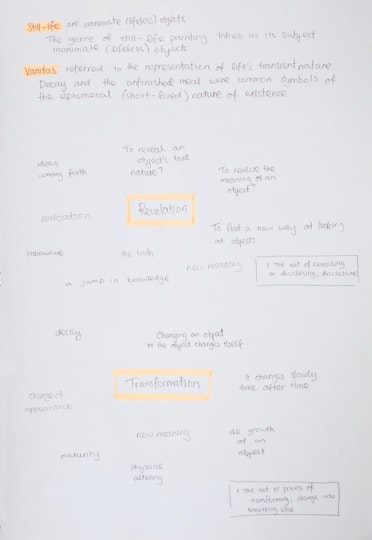 Still-life are inanimate (lifeless) objects
The genre of still-life painting takes as its subject
inanimate (lifeless) objects.
Vanitas referred to the representation of life's transient nature.
Decay and the unfinished meal were common symbols
of the ephemeral (short-lived) nature of existence.
ideas
coming forth
To reveal an
object's true
nature?
To realise the
meaning of an
object?
realisation
Revelation
To find a new way of looking
at objects.
brainwave
the truth
new meaning
a jump in knowledge
1. The act of revealing
or disclosing, disclosure
decay
Changing an object
or the object changes itself
Transformation
It changes slowly
time after time
change of
appearance
new meaning
the growth
of an
object
maturity
physical
altering
1. The act or process of
transforming, change into
something else